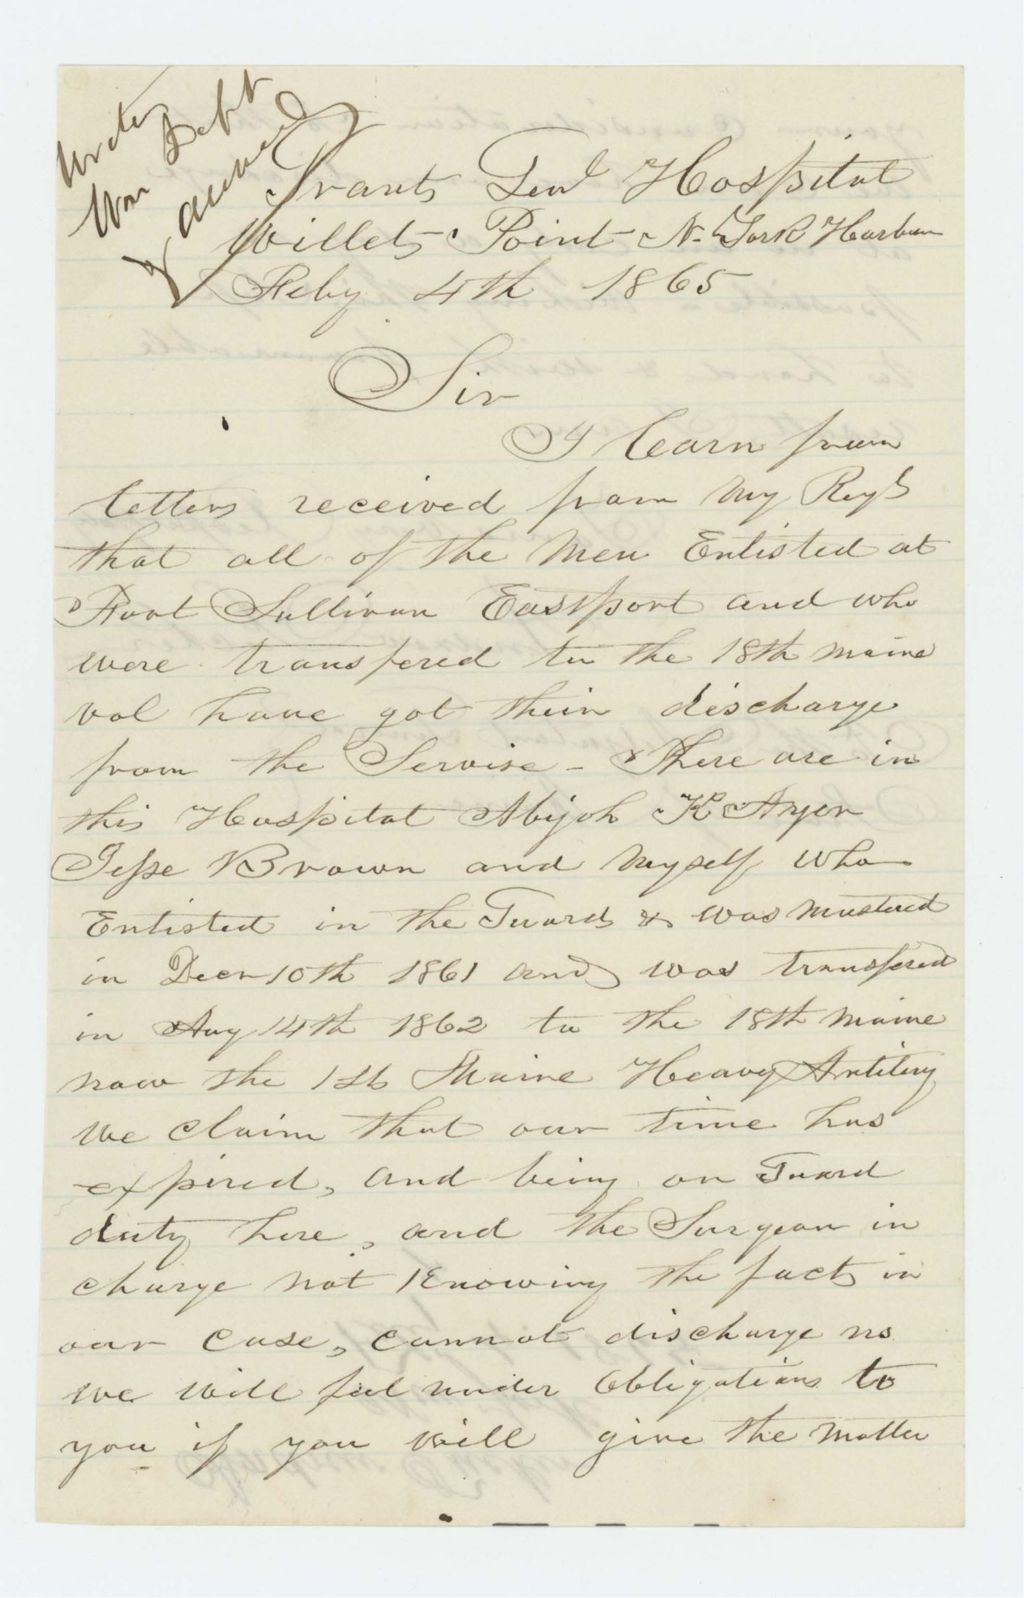 Write
War Dept
& answered
Grants Genl Hospital
Willets Point N. York Harbour
Feby 4th 1865
Sir
I learn from
letters received from my Regt
that all of the men Enlisted at
Fort Sullivan Eastport and who
were transfered to the 18th maine
vol have got their discharge
from the Servise - There are in
this Hospital Abijah K Ayer
Jesse Brown and myself who
Enlisted in the Guards & was mustered
in Decr 10th 1861 and was transfered
in Aug 14th 1862 to the 18th maine
now the 1st Maine Heavy Artilery
we claim that our time has
expired, and being on Guard
duty here, and the Surgeon in
charge not Knowing the facts in
our case, cannot discharge us
we will feel under obligations to
you if you will give the matter